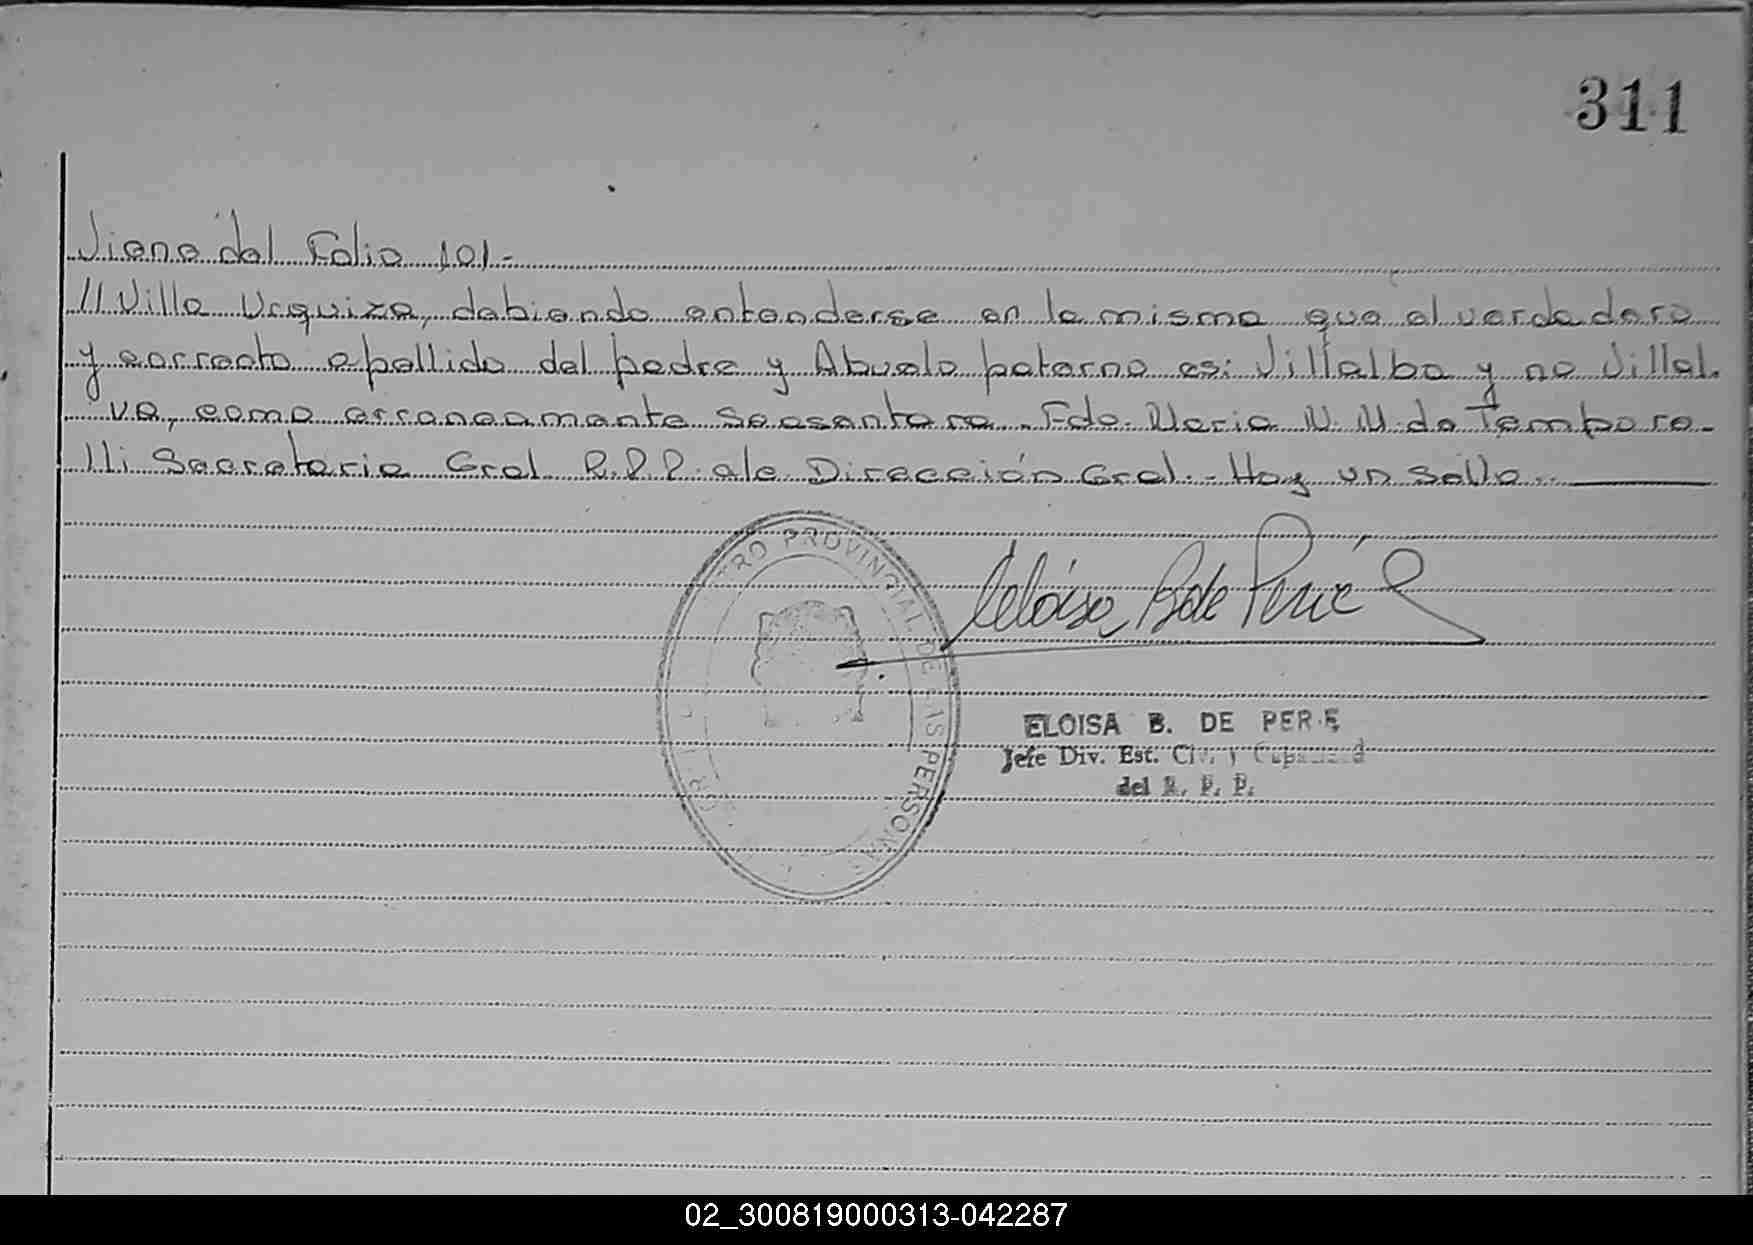 311
Viene del Folio 101.-
// Villa Urquiza, debiendo entenderse en la misma que el verdadero
y correcto apellido del padre y Abuelo paterno es: Villalba y no Villal-
va, como erroneamente se asentara. Fdo. Maria N. M. de Tempora-
lli Secretaria Gral R.P.P. a/c Dirección Gral.- Hay un sello.-
PROVINCIAL DE LAS PERSONAS
Eloísa B de Peré
ELOISA B. DE PERE
Jefe Div. Est. Civ. y Capacidad
del R. P. P.
02_300819000313-042287